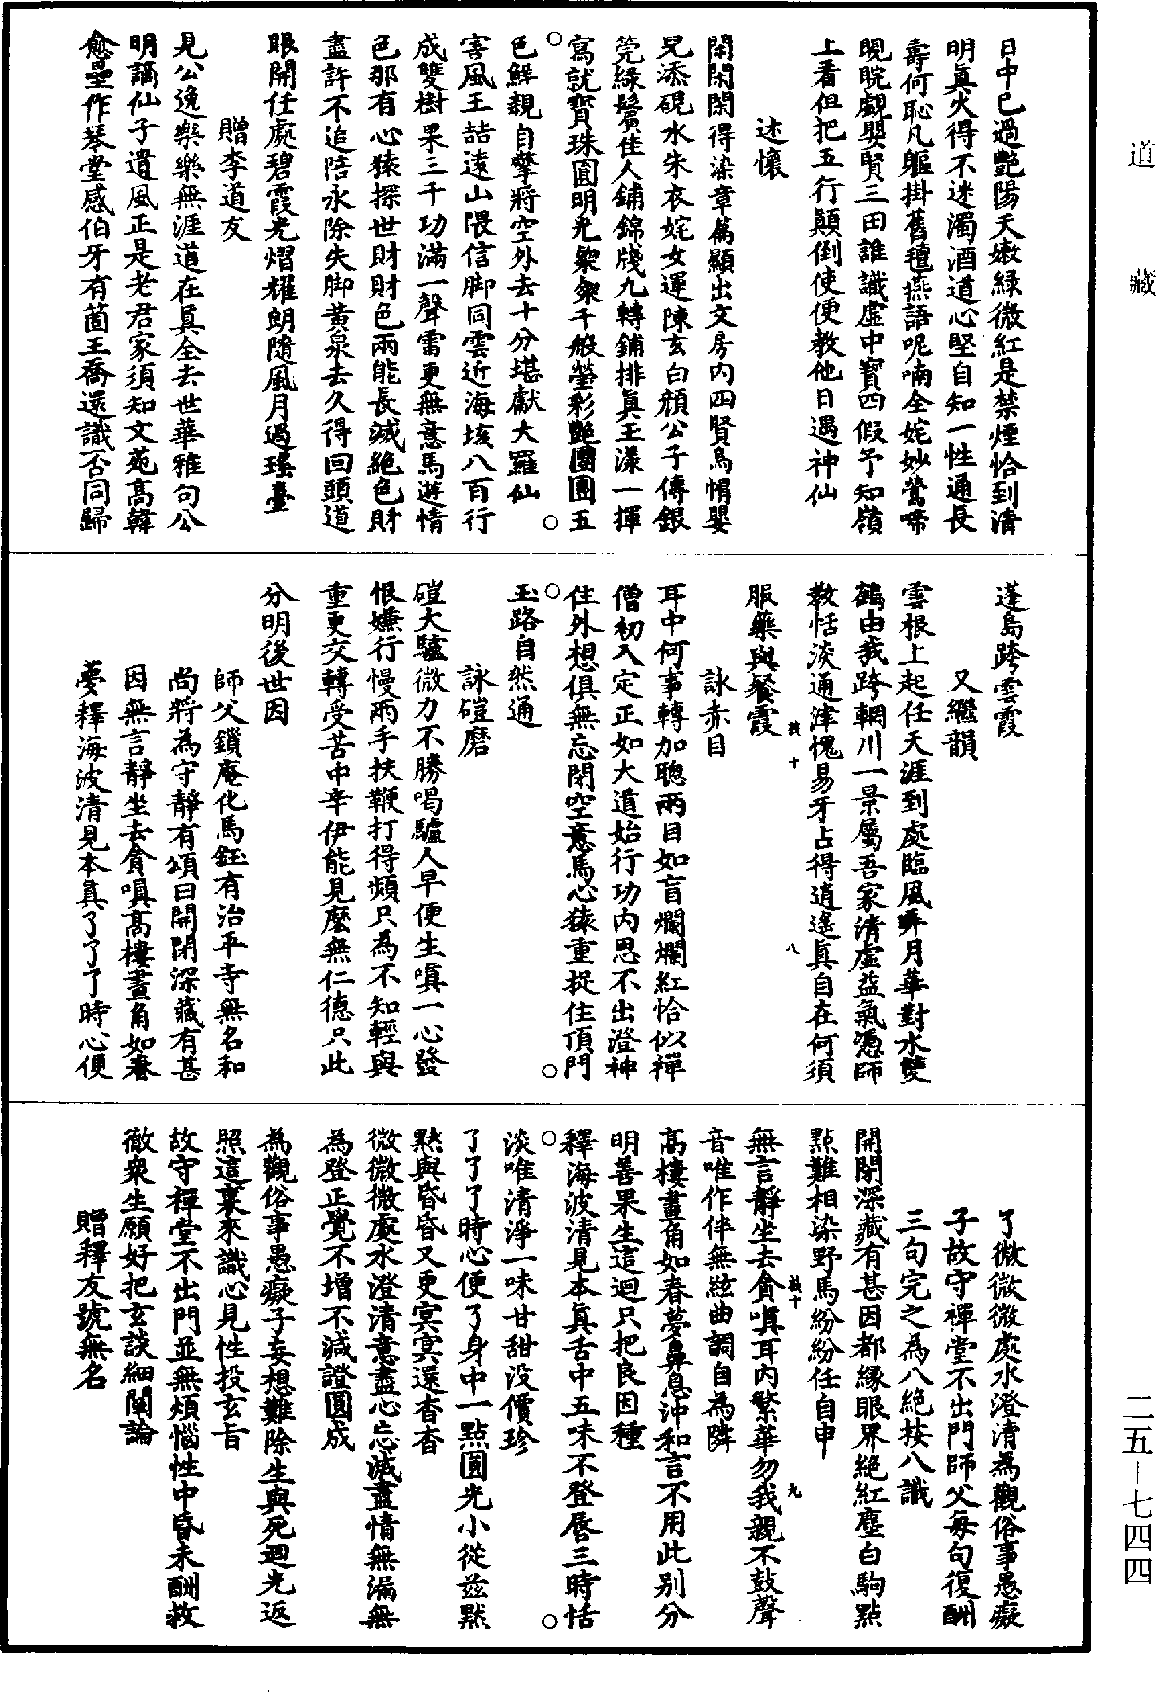 道藏
日中已過艷陽天嫩緑微紅是禁煙恰到清
明真火得不迷濁酒道心堅自知一性通長
壽何恥凡軀掛舊氊燕語呢喃全姹妙鶯啼
睍睆覷嬰賢三田誰識虛中寳四假予知嶺
上看但把五行顛倒使便教他日遇神仙
述懷
閑閑閑得染章篇顯出文房内四賢烏帽嬰
兒添硯水朱衣姹女運陳玄白頭公子傳銀
筦緑鬢佳人鋪錦牋九轉鋪排真王漾一揮
寫就寳珠圓明光粲粲千般瑩彩艷團團五
色鮮親自擎將空外去十分堪獻大羅仙
害風王喆遠山隈信脚同雲近海垓八百行
成雙樹果三千功滿一聲雷更無意馬遊情
色那有心猿探世財財色兩能長滅絕色財
盡許不追陪永除失脚黄泉去久得回頭道
眼開任處碧霞光熠耀朗隨風月過瑶臺
贈李道友
見公逸樂樂無涯道在真全去世華雅句公
明謫仙子遺風正是老君家須知文苑高韓
愈曇作琴堂感伯牙有箇王喬還識否同歸
蓬島跨雲霞
又繼韻
雲根上起任天涯到處臨風弄月華對水雙
鶴由我跨輞川一景屬吾家清虛益氣憑師
教恬淡通津愧易牙占得逍遥真自在何須
服藥與餐霞
詠赤目
耳中何事轉加聰兩目如盲爛爛紅恰似禪
僧初入定正如大道始行功内思不出澄神
住外想俱無忘閉空意馬心猿重捉住頂門
玉路自然通
詠磑磨
磑大驢微力不勝喝驢人早便生嗔一心發
恨嫌行慢兩手扶鞭打得頻只為不知輕與
重更交轉受苦中辛伊能見麼無仁德只此
分明後世因
師父鎖庵化馬鈺有治平寺無名和
尚將為守静有頌曰開閉深藏有甚
因無言静坐去貪嗔高樓畫角如春
夢釋海波清見本真了了了時心便
了微微微處水澄清為觀俗事愚癡
子故守禪堂不出門師父每句復酬
三句完之為八絶按八識
開閉深藏有甚因都緣眼界絶紅塵白駒點
點難相染野馬紛紛任自申
無言静坐去貪嗔耳内繁華勿我親不鼓聲
音唯作伴無絃曲調自為隣
高樓畫角如春夢鼻息沖和言不用此别分
明善果生這迴只把良因種
釋海波清見本真舌中五味不登唇三時恬
淡唯清淨一味甘甜没價珍
了了了時心便了身中一點圓光小從茲黙
黙與昏昏又更冥冥還杳杳
微微微處水澄清意盡心忘滅盡情無漏無
為登正覺不增不減證圓成
為觀俗事愚癡子妄想難除生與死迴光返
照這裏來識心見性投玄旨
故守禪堂不出門並無煩惱性中昏未酬救
徹衆生願好把玄談細闡論
贈釋友號無名
二五—七四四